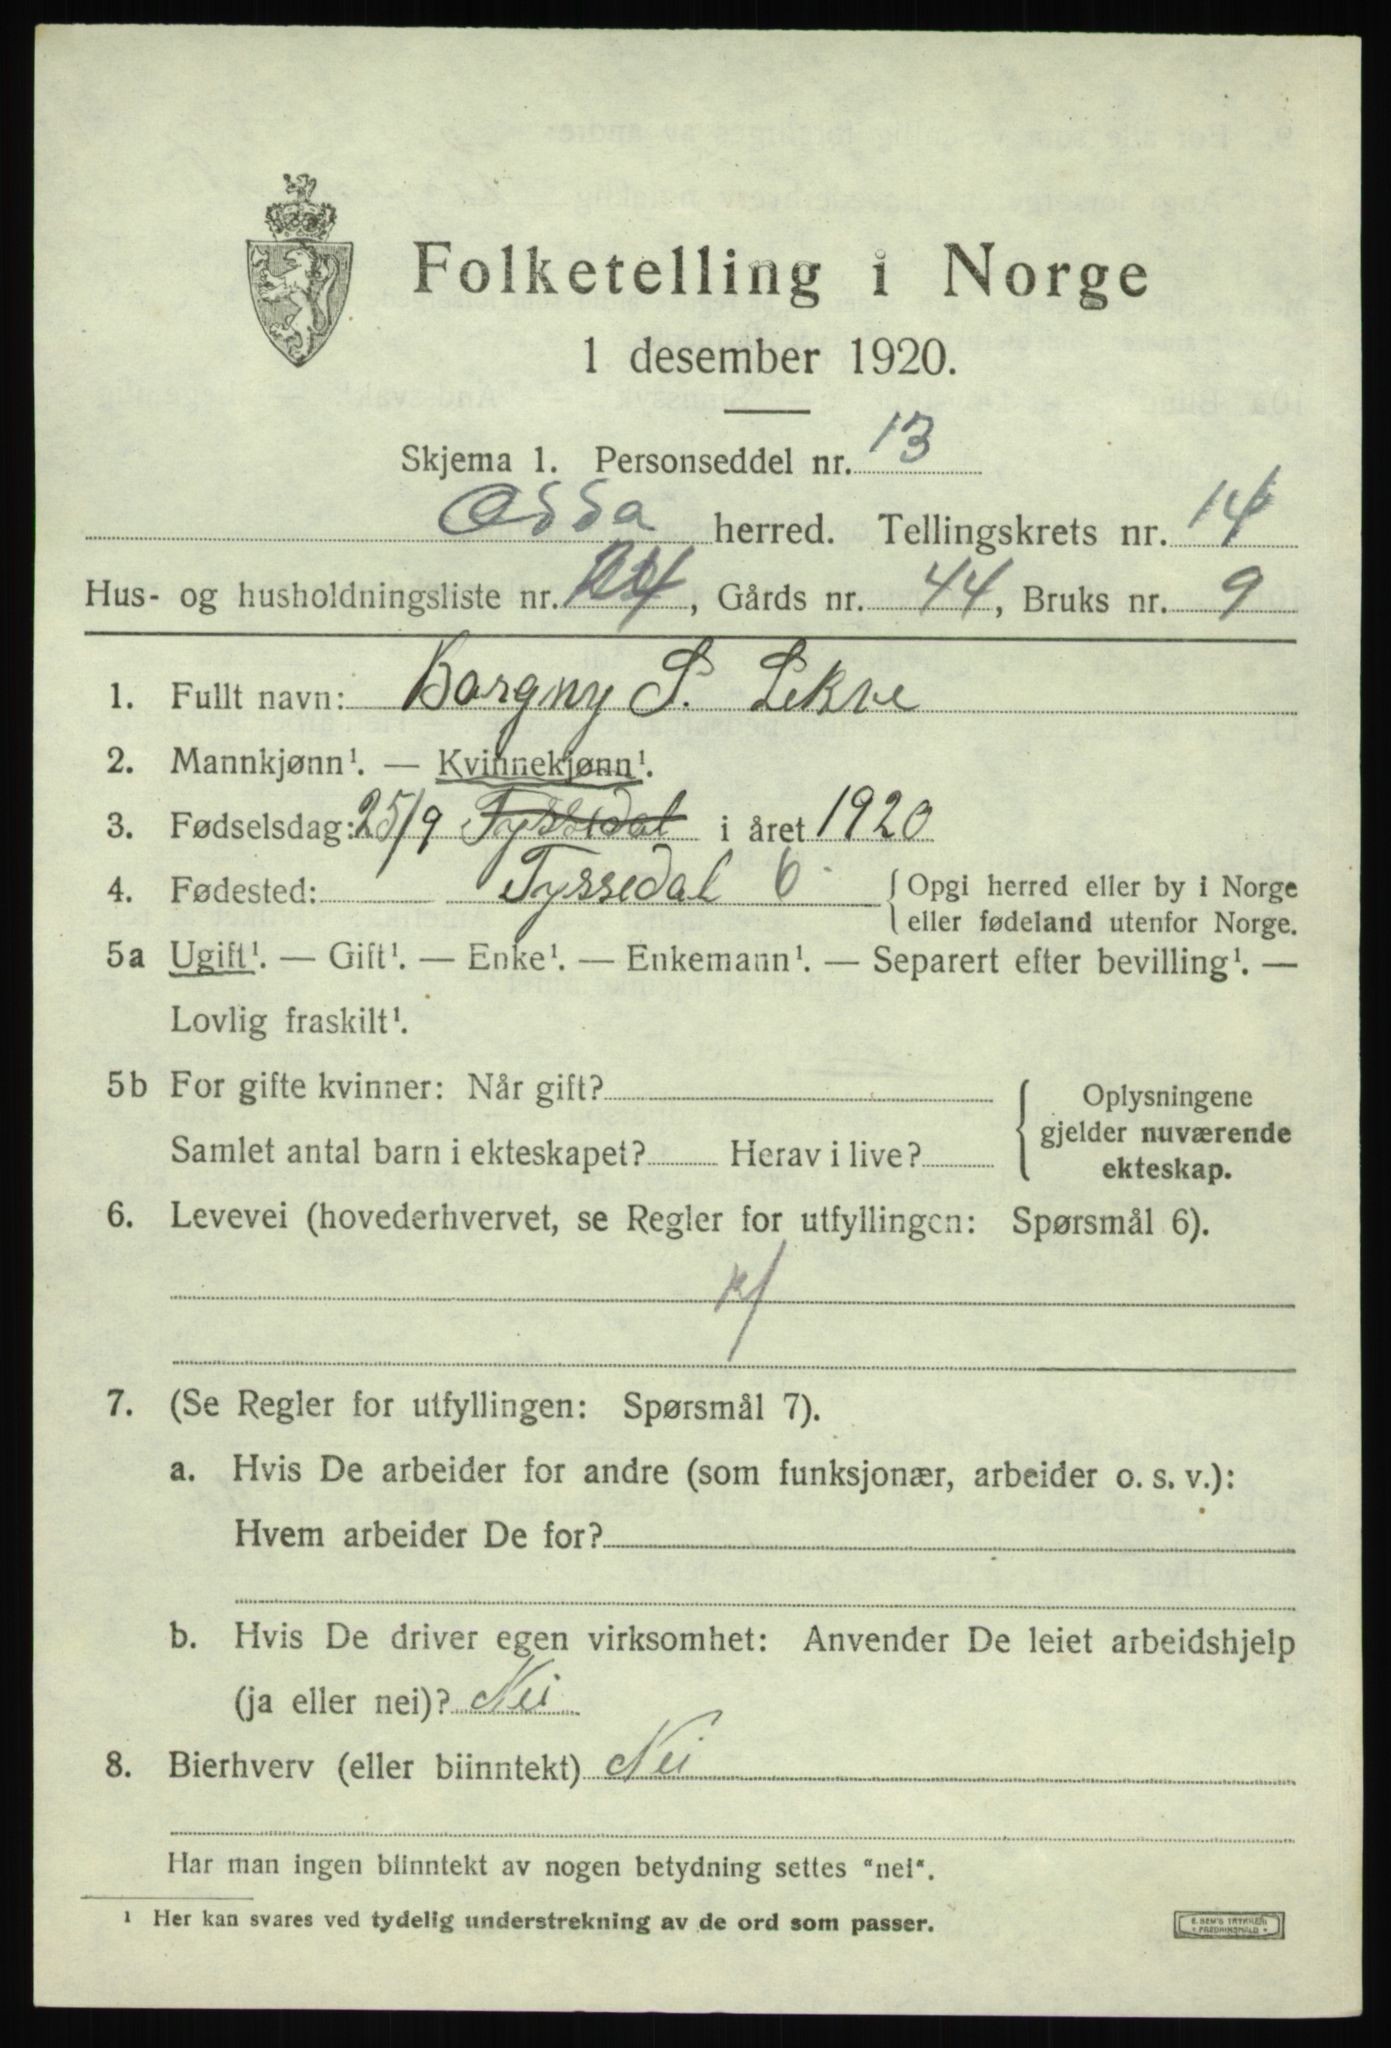 Folketelling i Norge
1 desember 1920.
Skjema 1. Personseddel nr. 13
Odda herred. Tellingskrets nr. 14
Hus- og husholdningsliste nr. 24, Gårds nr. 44, Bruks nr. 9
1. Fullt navn: Borgny S. Lekve
2. Mannkjønn¹. — Kvinnekjønn¹.
3. Fødselsdag: 25/9 Tyssedal i året 1920
4. Fødested: Tyssedal 6 { Opgi herred eller by i Norge
eller fødeland utenfor Norge.
5a Ugift¹. — Gift¹. — Enke¹. — Enkemann¹. — Separert efter bevilling¹. —
Lovlig fraskilt¹.
5b For gifte kvinner: Når gift?
Samlet antal barn i ekteskapet? Herav i live?
{ Oplysningene
gjelder nuværende
ekteskap.
6. Levevei (hovederhvervet, se Regler for utfyllingen: Spørsmål 6).
7. (Se Regler for utfyllingen: Spørsmål 7).
a. Hvis De arbeider for andre (som funksjonær, arbeider o. s. v.):
Hvem arbeider De for?
b. Hvis De driver egen virksomhet: Anvender De leiet arbeidshjelp
(ja eller nei)? Nei
8. Bierhverv (eller biinntekt) Nei
Har man ingen biinntekt av nogen betydning settes "nei".
¹ Her kan svares ved tydelig understrekning av de ord som passer.